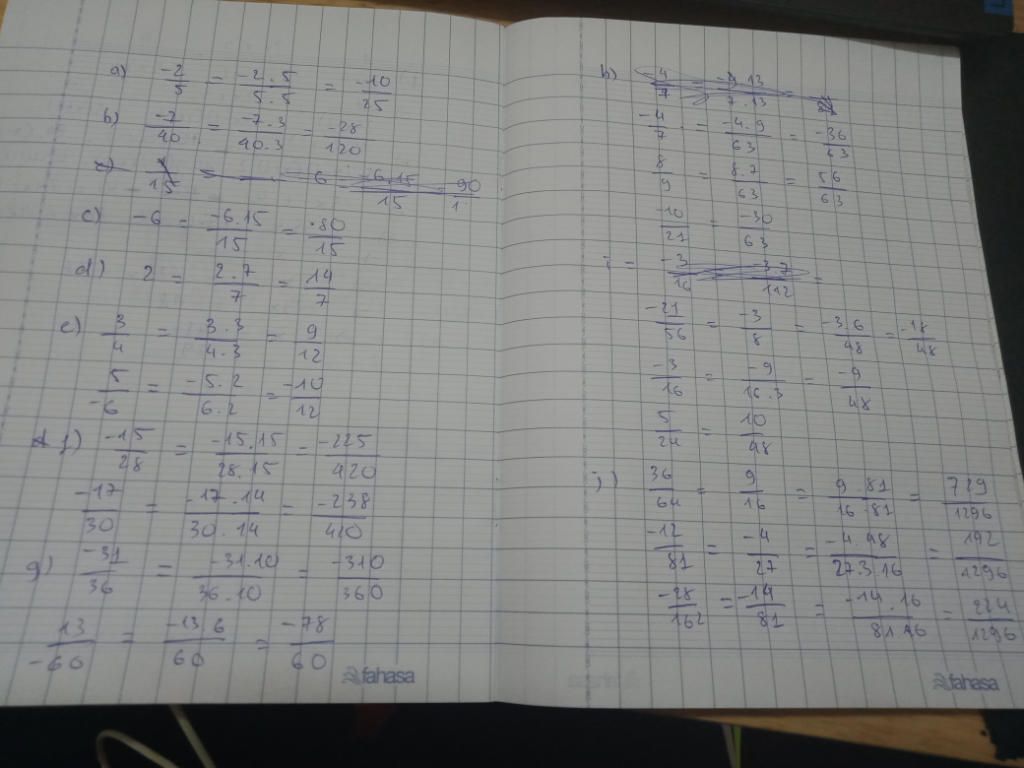 a) -2/5 = -2.5/5.5 = -10/25
b) -7/40 = -7.3/40.3 = -28/120
c) -6 = -6.15/15 = -80/15
d) 2 = 2.7/7 = 14/7
e) 3/4 = 3.3/4.3 = 9/12
5/-6 = -5.2/6.2 = -10/12
f) -15/28 = -15.15/28.15 = -225/420
-17/30 = -17.14/30.14 = -238/420
g) -31/36 = -31.10/36.10 = -310/360
13/-60 = -13 6/60 = -78/60
fahasa
h)
-4/7 = -4.9/63 = -36/63
8/9 = 8.7/63 = 56/63
-10/21 = -30/63
-21/56 = -3/8 = -3 6/48 = -18/48
-3/16 = -9/16.3 = -9/48
5/24 = 10/48
j) 36/64 = 9/16 = 9 81/16 81 = 729/1296
-12/81 = -4/27 = -4.48/27.3 16 = 192/1296
-28/162 = -14/81 = -14.16/81.16 = 224/1296
fahasa